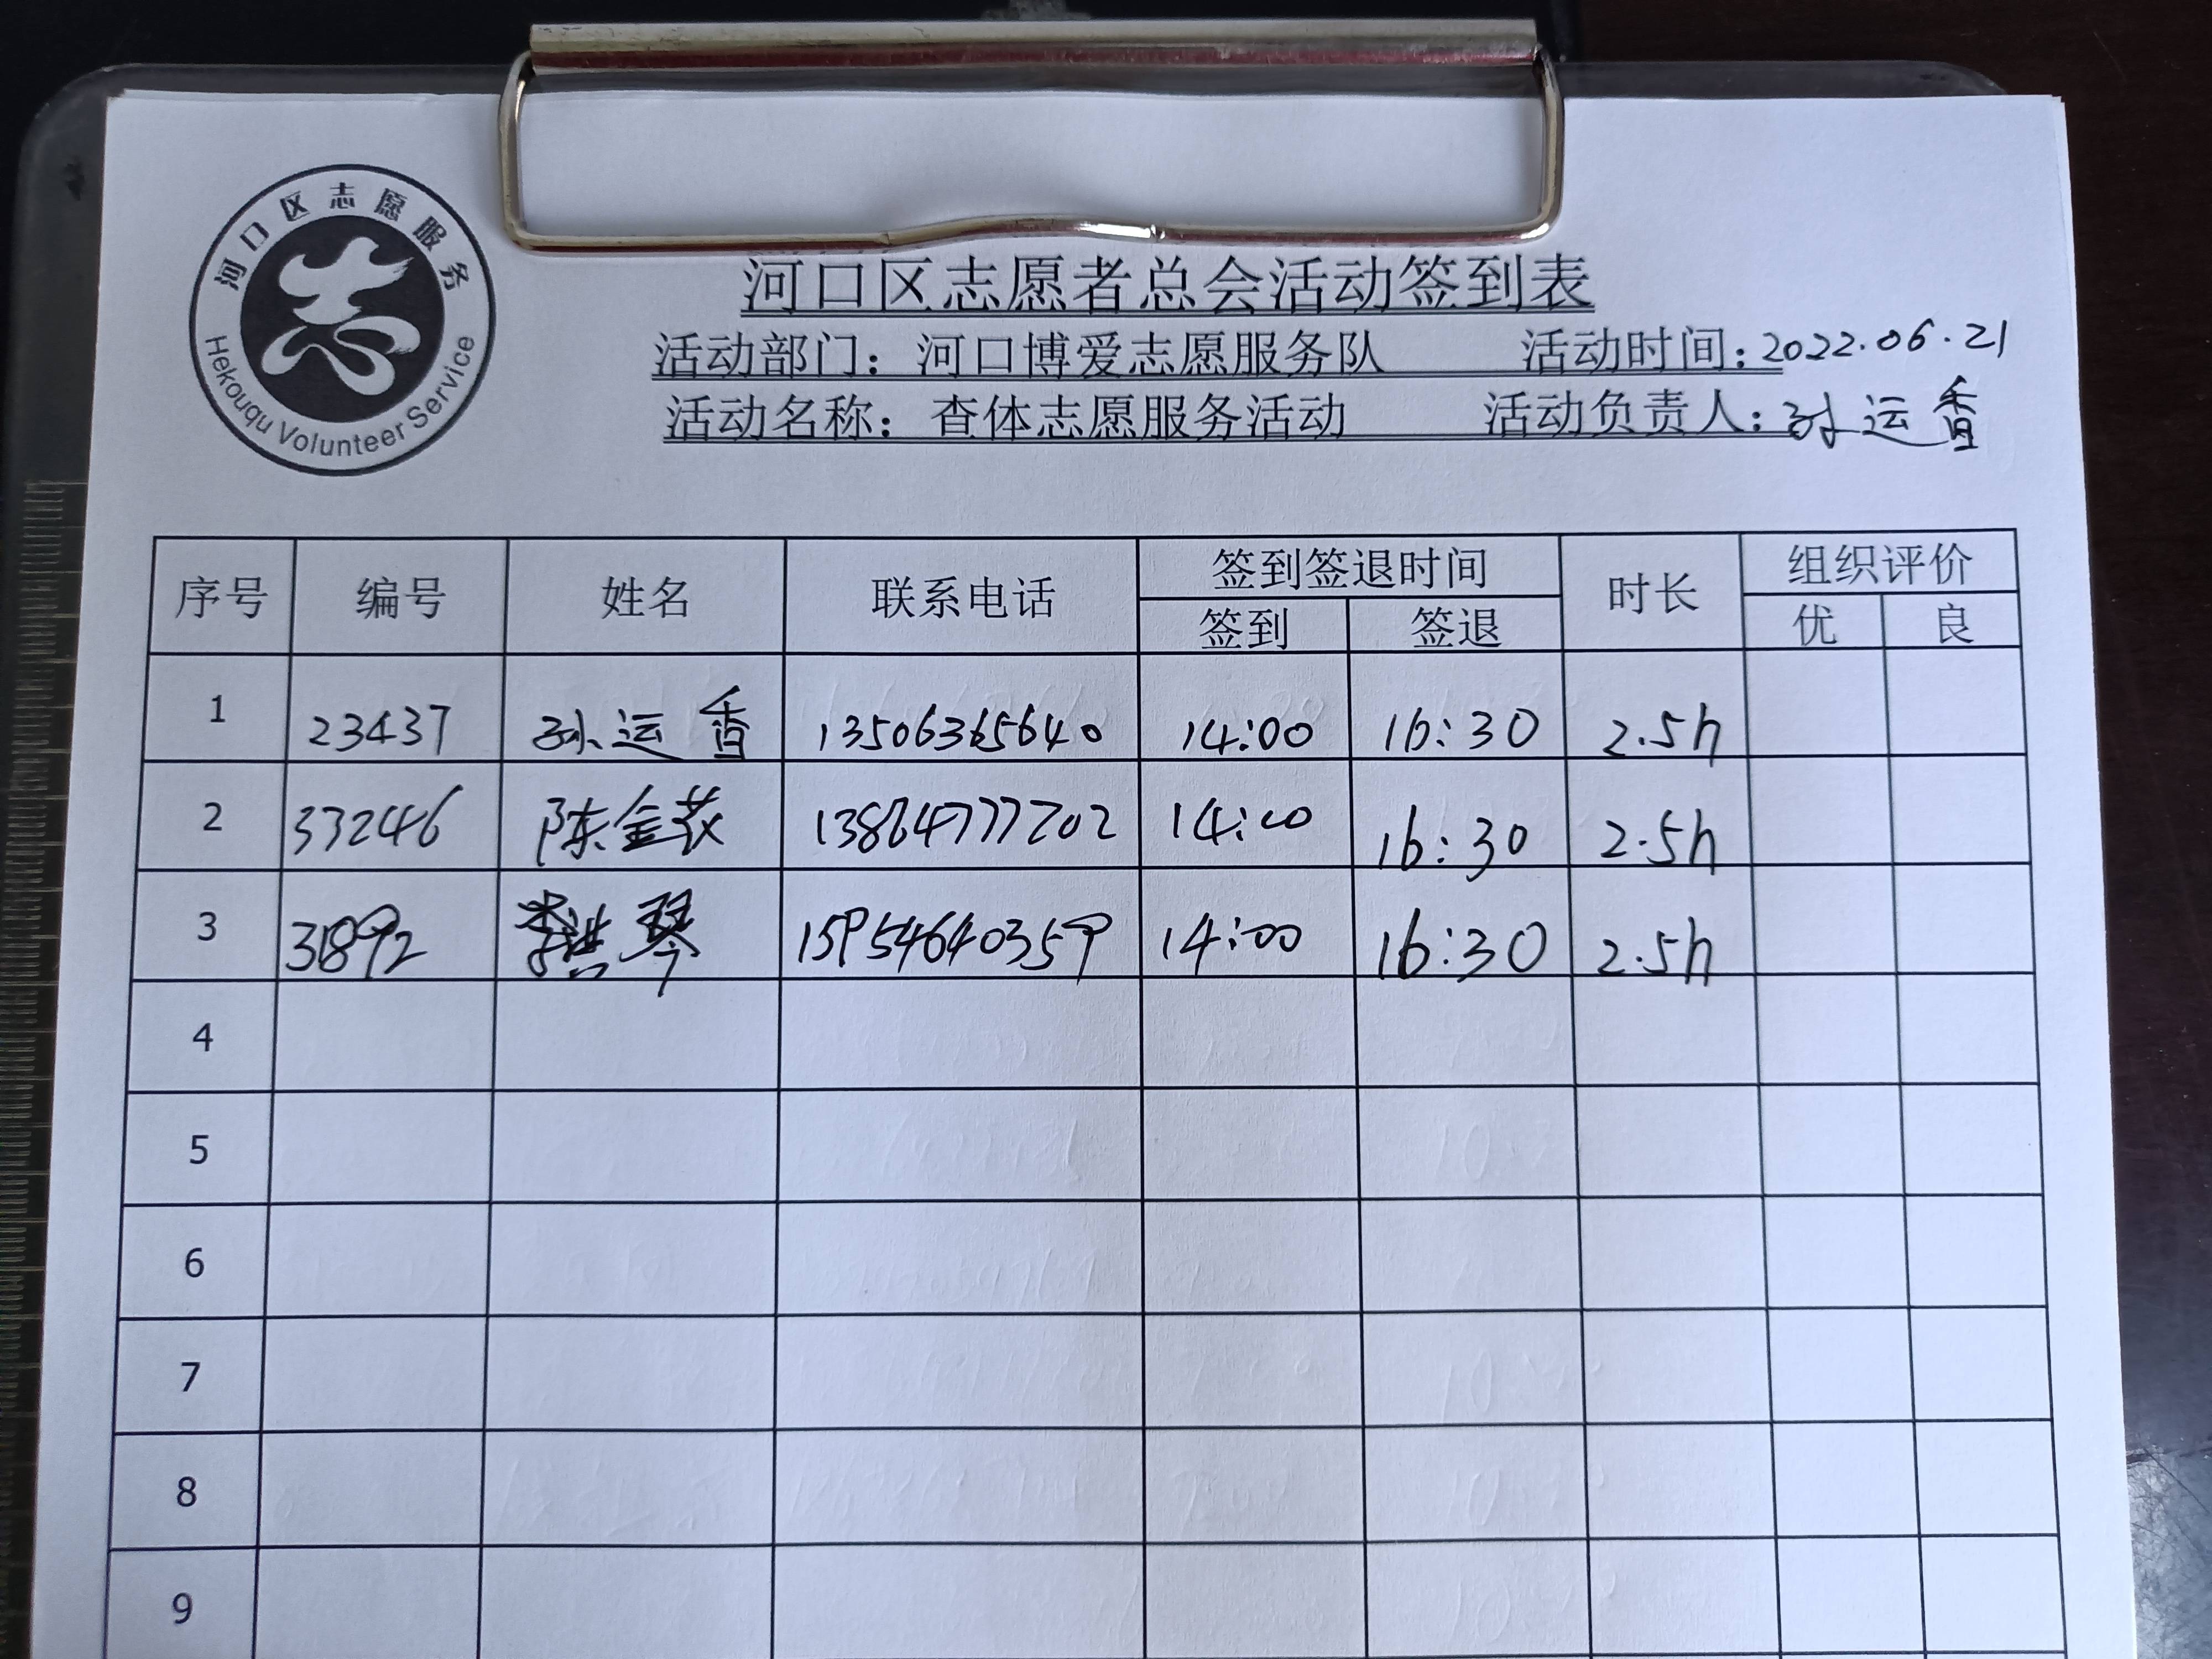 河口区志愿服务
Hekouqu Volunteer Service
河口区志愿者总会活动签到表
活动部门：河口博爱志愿服务队 活动时间：2022.06.21
活动名称：查体志愿服务活动 活动负责人：孙运香
序号 编号 姓名 联系电话 签到签退时间 时长 组织评价
签到 签退 优 良
1 23437 孙运香 13506365640 14:00 16:30 2.5h
2 33246 陈金 13864777202 14:00 16:30 2.5h
3 31892 李洪琴 15954640359 14:00 16:30 2.5h
4
5
6
7
8
9